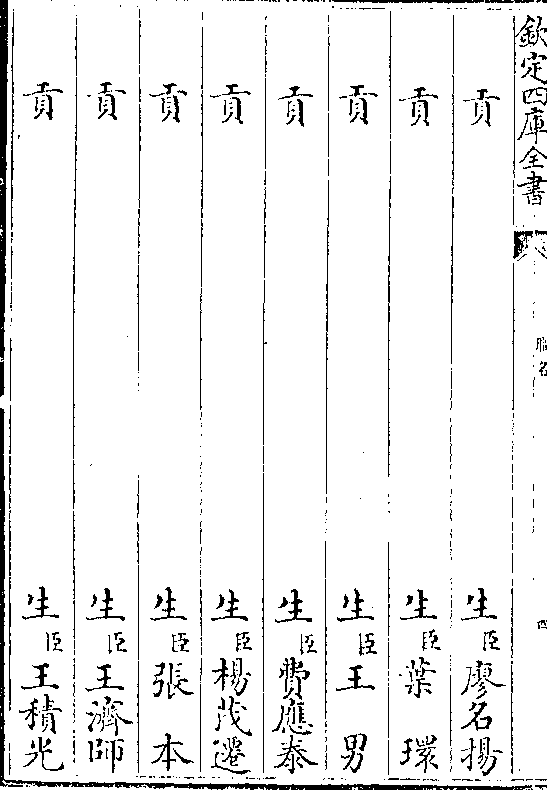 欽定四庫全書
職名
四
貢生臣廖名揚
貢生臣葉環
貢生臣王男
貢生臣費應泰
貢生臣楊茂遷
貢生臣張本
貢生臣王濟師
貢生臣王積光